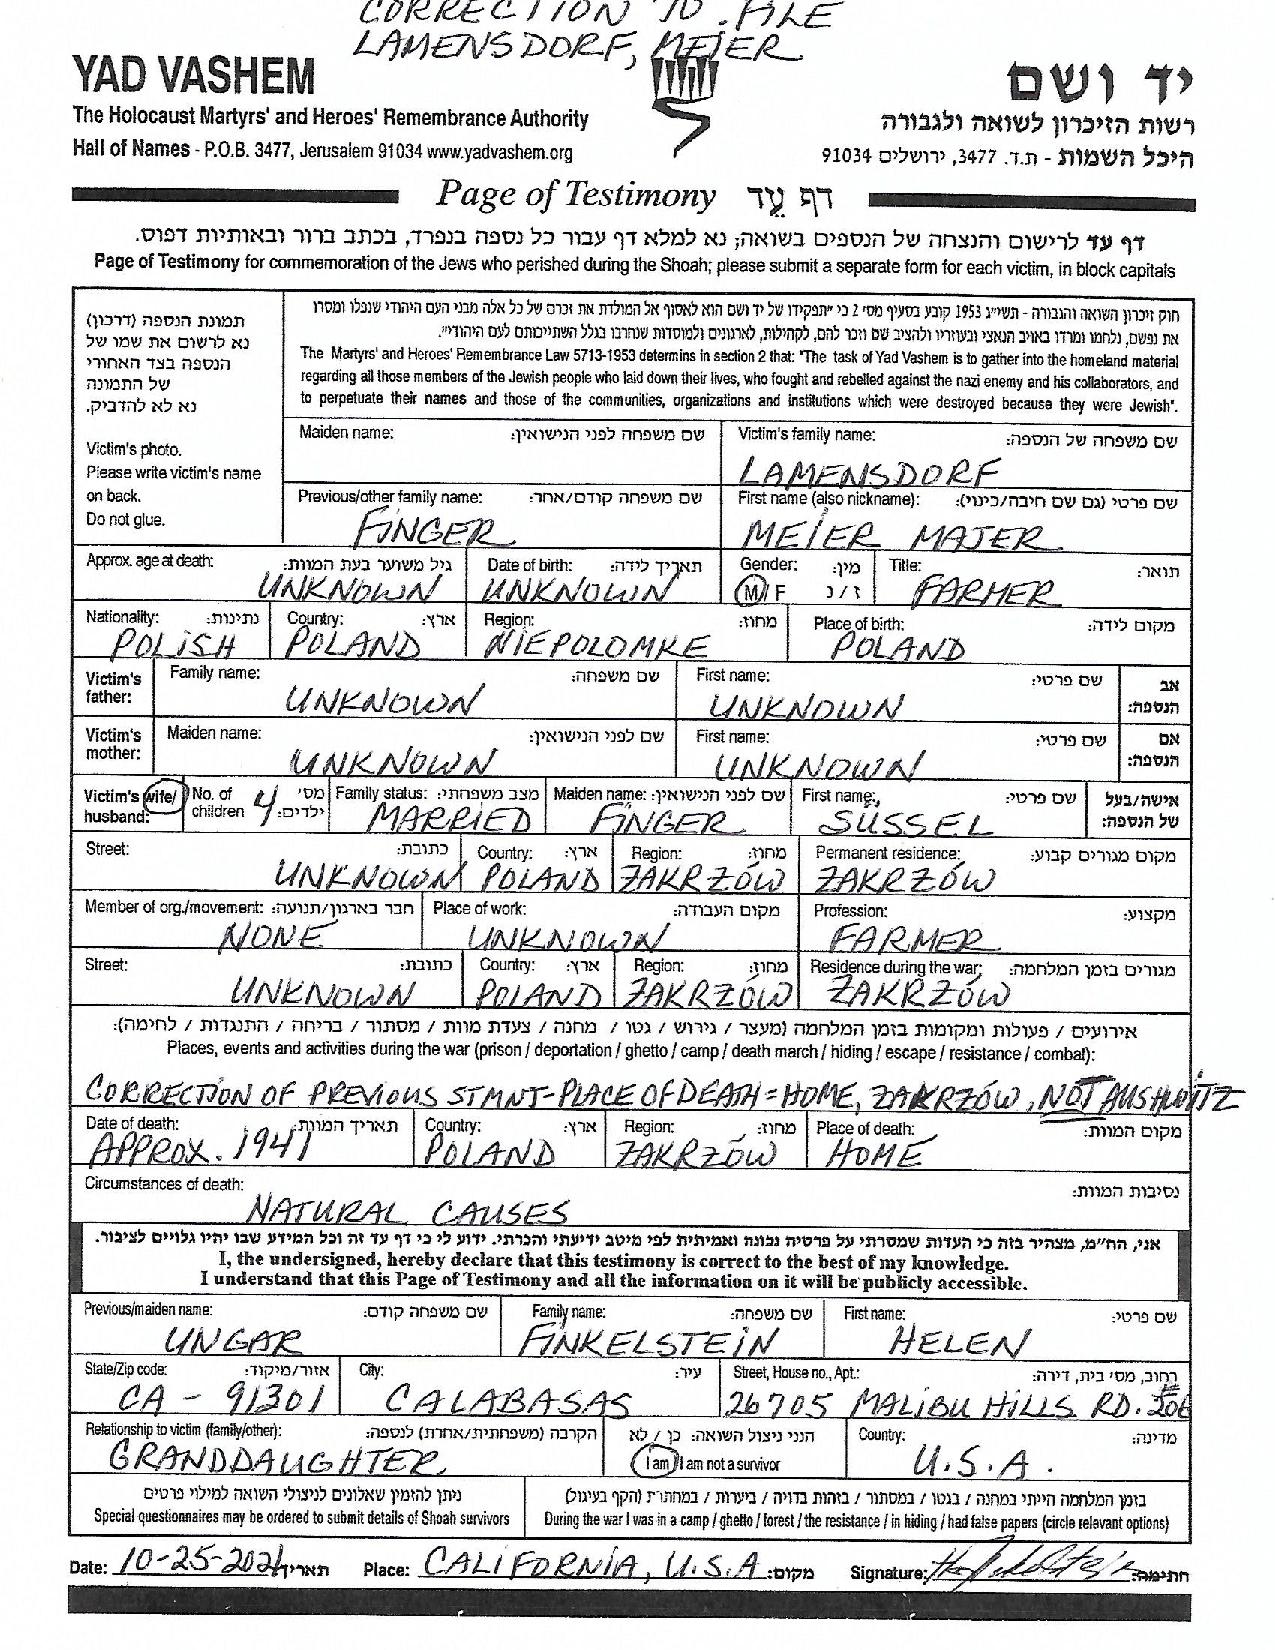 CORRECTION TO FILE
LAMENSDORF, MEIER
YAD VASHEM
יד ושם
The Holocaust Martyrs' and Heroes' Remembrance Authority
רשות הזיכרון לשואה ולגבורה
Hall of Names - P.O.B. 3477, Jerusalem 91034 www.yadvashem.org
היכל השמות - ת.ד. 3477, ירושלים 91034
Page of Testimony דף עד
דף עד לרישום והנצחה של הנספים בשואה; נא למלא דף עבור כל נספה בנפרד, בכתב ברור ובאותיות דפוס.
Page of Testimony for commemoration of the Jews who perished during the Shoah; please submit a separate form for each victim, in block capitals
תמונת הנספה (דרכון)
נא לרשום את שמו של
הנספה בצד האחורי
של התמונה
נא לא להדביק.
Victim's photo.
Please write victim's name
on back.
Do not glue.
חוק זיכרון השואה והגבורה - תשי"ג 1953 קובע בסעיף מס' 2 כי "תפקידו של יד ושם הוא לאסוף אל המולדת את זכרם של כל אלה מבני העם היהודי שנפלו ומסרו
את נפשם, נלחמו ומרדו באויב הנאצי ובעוזריו ולהציב שם וזכר להם, לקהילות, לארגונים ולמוסדות שנחרבו בגלל השתייכותם לעם היהודי".
The Martyrs' and Heroes' Remembrance Law 5713-1953 determins in section 2 that: "The task of Yad Vashem is to gather into the homeland material
regarding all those members of the Jewish people who laid down their lives, who fought and rebelled against the nazi enemy and his collaborators, and
to perpetuate their names and those of the communities, organizations and institutions which were destroyed because they were Jewish".
Maiden name: שם משפחה לפני הנישואין: Victim's family name: שם משפחה של הנספה:
LAMENSDORF
Previous/other family name: שם משפחה קודם/אחר: First name (also nickname): שם פרטי (גם שם חיבה/כינוי):
FINGER MEIER MAJER
Approx. age at death: גיל משוער בעת המוות: Date of birth: תאריך לידה: Gender: מין: Title: תואר:
UNKNOWN UNKNOWN M/ F ז / נ FARMER
Nationality: נתינות: Country: ארץ: Region: מחוז: Place of birth: מקום לידה:
POLISH POLAND NIEPOLOMKE POLAND
Victim's father: Family name: שם משפחה: First name: שם פרטי: אב הנספה:
UNKNOWN UNKNOWN
Victim's mother: Maiden name: שם לפני הנישואין: First name: שם פרטי: אם הנספה:
UNKNOWN UNKNOWN
Victim's wife/ husband: No. of children 4 מס' ילדים: Family status: מצב משפחתי: Maiden name: שם לפני הנישואין: First name: שם פרטי: אישה/בעל של הנספה:
MARRIED FINGER SUSSEL
Street: כתובת: Country: ארץ: Region: מחוז: Permanent residence: מקום מגורים קבוע:
UNKNOWN POLAND ZAKRZÓW ZAKRZÓW
Member of org./movement: חבר בארגון/תנועה: Place of work: מקום העבודה: Profession: מקצוע:
NONE UNKNOWN FARMER
Street: כתובת: Country: ארץ: Region: מחוז: Residence during the war: מגורים בזמן המלחמה:
UNKNOWN POLAND ZAKRZÓW ZAKRZÓW
אירועים / פעולות ומקומות בזמן המלחמה (מעצר / גירוש / גטו / מחנה / צעדת מוות / מסתור / בריחה / התנגדות / לחימה):
Places, events and activities during the war (prison / deportation / ghetto / camp / death march / hiding / escape / resistance / combat):
CORRECTION OF PREVIOUS STMNT-PLACE OF DEATH = HOME, ZAKRZÓW, NOT AUSHWITZ
Date of death: תאריך המוות: Country: ארץ: Region: מחוז: Place of death: מקום המוות:
APPROX. 1941 POLAND ZAKRZÓW HOME
Circumstances of death: נסיבות המוות:
NATURAL CAUSES
אני, הח"מ, מצהיר בזה כי העדות שמסרתי על פרטיה נכונה ואמיתית לפי מיטב ידיעתי והכרתי. ידוע לי כי דף עד זה וכל המידע שבו יהיו גלויים לציבור.
I, the undersigned, hereby declare that this testimony is correct to the best of my knowledge.
I understand that this Page of Testimony and all the information on it will be publicly accessible.
Previous/maiden name: שם משפחה קודם: Family name: שם משפחה: First name: שם פרטי:
UNGAR FINKELSTEIN HELEN
State/Zip code: אזור/מיקוד: City: עיר: Street, House no., Apt.: רחוב, מס' בית, דירה:
CA - 91301 CALABASAS 26705 MALIBU HILLS RD. #206
Relationship to victim (family/other): הקרבה (משפחתית/אחרת) לנספה: הנני ניצול השואה: כן / לא Country: מדינה:
GRANDDAUGHTER I am/ I am not a survivor U.S.A.
ניתן להזמין שאלונים לניצולי השואה למילוי פרטים
Special questionnaires may be ordered to submit details of Shoah survivors
בזמן המלחמה הייתי במחנה / בגטו / במסתור / בזהות בדויה / ביערות / במחתרת (הקף בעיגול)
During the war I was in a camp / ghetto / forest / the resistance / in hiding / had false papers (circle relevant options)
Date: 10-25-2021 תאריך Place: CALIFORNIA, U.S.A מקום: Signature: חתימה: